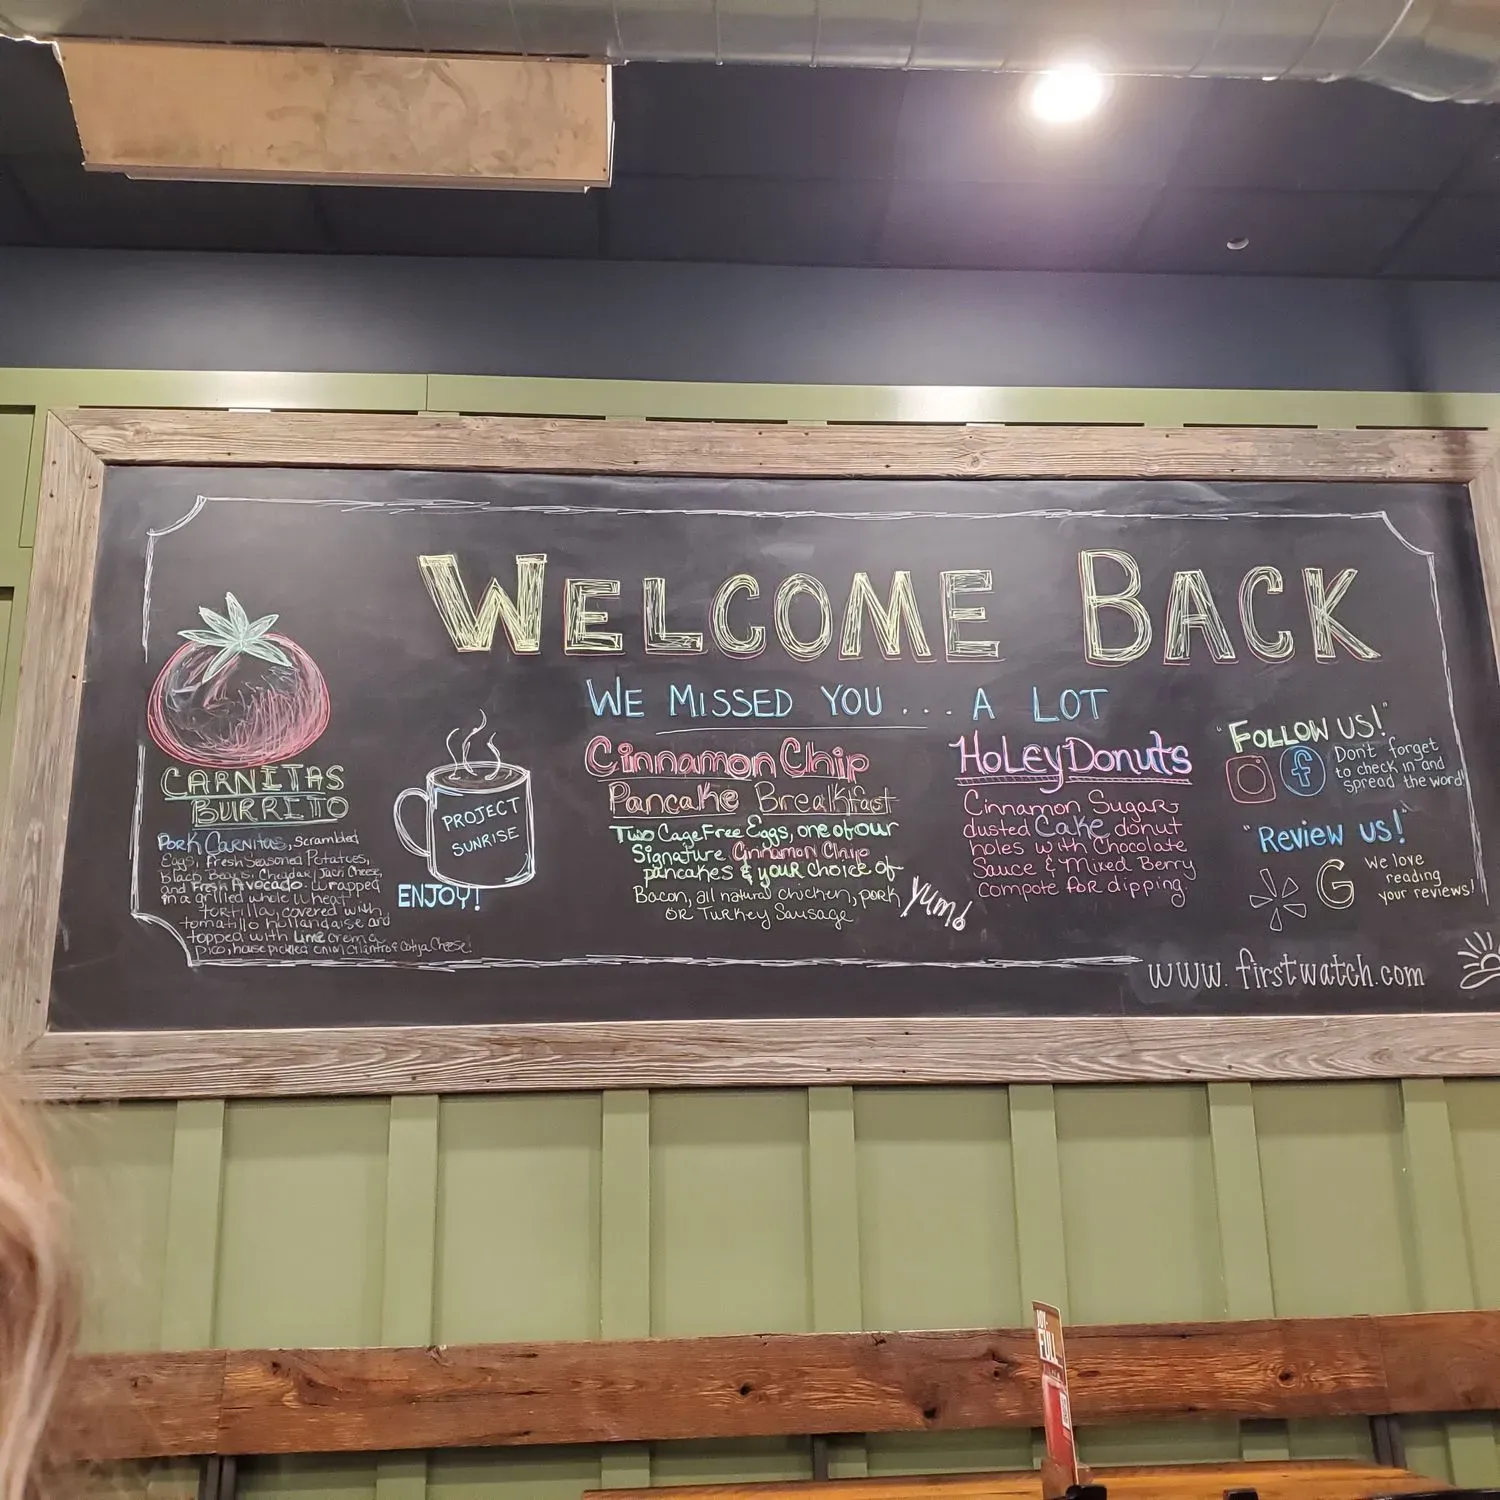 WELCOME BACK
WE MISSED YOU ... A LOT
CARNITAS
BURRITO
Pork Carnitas, Scrambled
Eggs, Fresh Seasoned Potatoes,
Black Beans, Cheddar/Jack Cheese,
and Fresh Avocado. Wrapped
in a grilled whole wheat
tortilla, covered with
tomatillo hollandaise and
topped with Lime crema
pico, house pickled onion, cilantro & Cotija Cheese!
PROJECT
SUNRISE
ENJOY!
Cinnamon Chip
Pancake Breakfast
Two Cage Free Eggs, one of our
Signature Cinnamon Chip
pancakes & your choice of
Bacon, all natural chicken, pork
OR Turkey Sausage
Yum!
HoLey Donuts
Cinnamon Sugar
dusted Cake donut
holes with Chocolate
Sauce & Mixed Berry
Compote for dipping
"FOLLOW US!"
f
Don't forget
to check in and
spread the word!
"Review us!"
G
We love
reading
your reviews!
www.firstwatch.com
JOY-
FULL